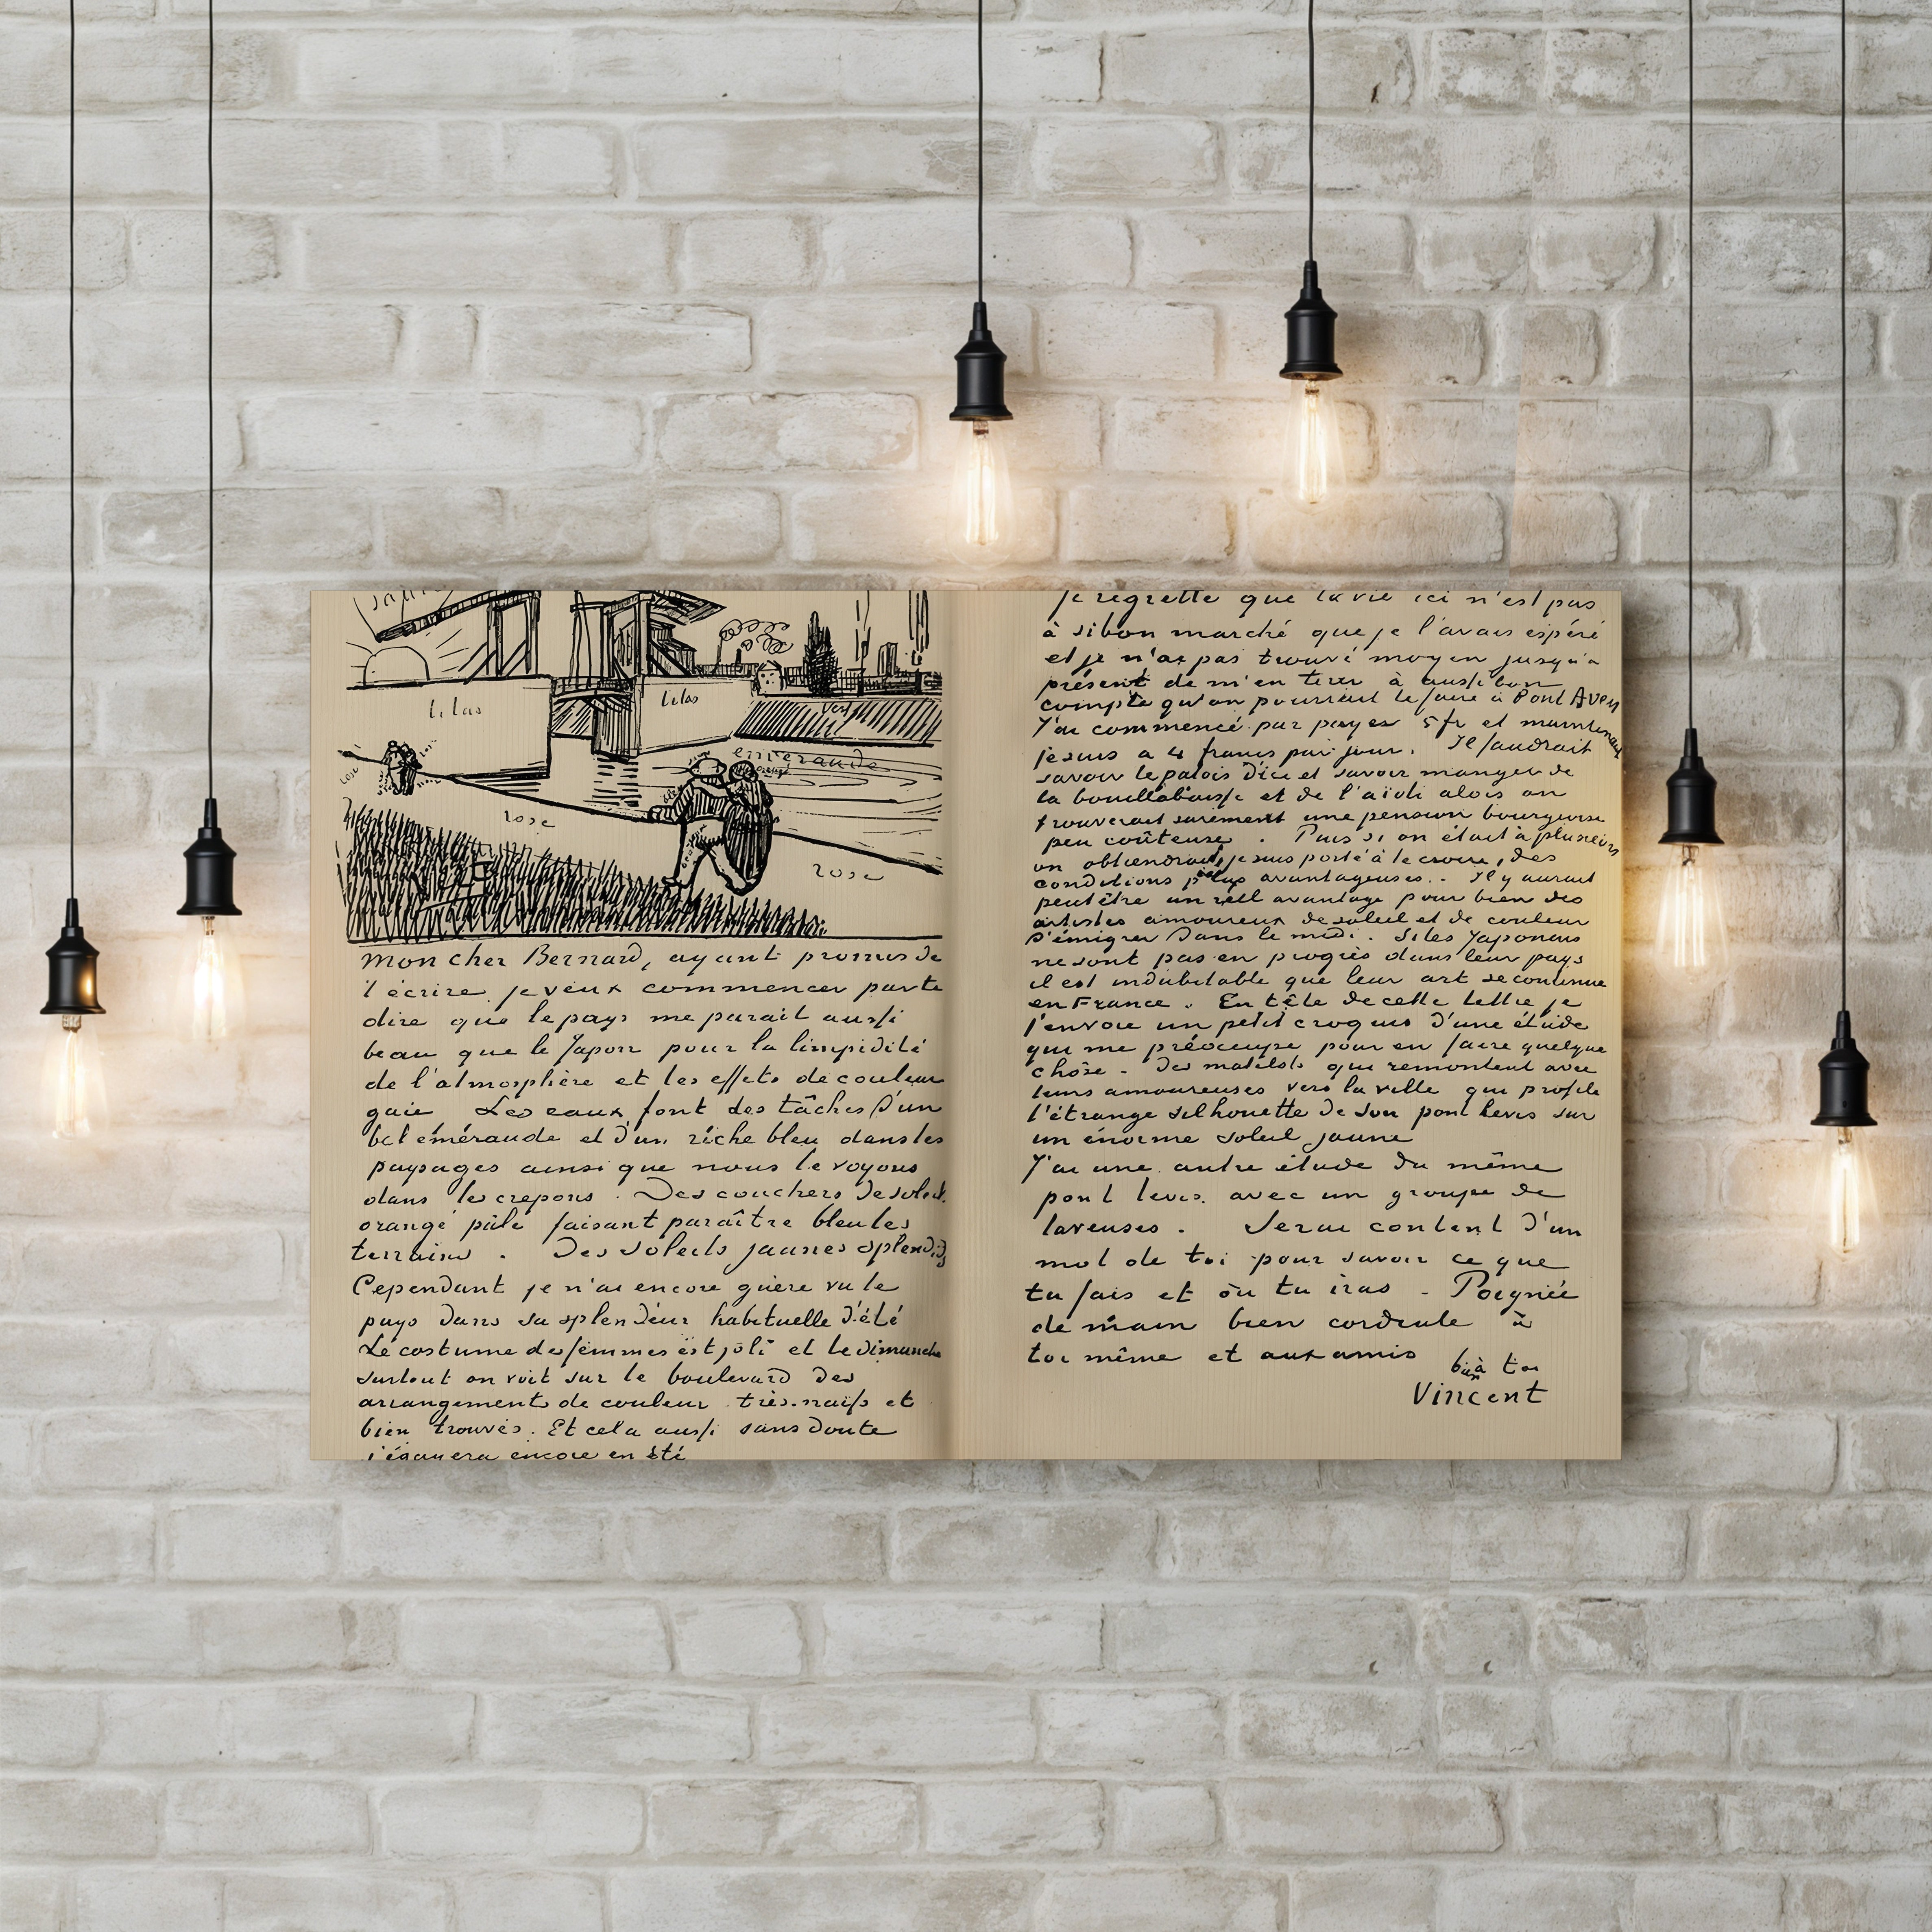 lilas
lilas
vert
emeraude
rose
rose
rose
mon cher Bernard, ayant promis de
t'écrire je veux commencer par te
dire que le pays me parait aussi
beau que le Japon pour la limpidité
de l'atmosphère et les effets de couleur
gaie Les eaux font des tâches d'un
bel émeraude et d'un riche bleu dans les
paysages ainsi que nous le voyons
dans les crepons. Des couchers de soleil
orangé pâle faisant paraître bleu les
terrains. Des soleils jaunes splendides
Cependant je n'ai encore guère vu le
pays dans sa splendeur habituelle d'été
Le costume des femmes est joli et le dimanche
surtout on voit sur le boulevard des
arrangement de couleur très naïfs et
bien trouvés. Et cela aussi sans doute
s'égayera encore en été
Je regrette que la vie ici n'est pas
à si bon marché que je l'avais espéré
et je n'ai pas trouvé moyen jusqu'à
présent de m'en tirer à aussi bon
compte qu'on pourrait le faire à Pont Aven
J'ai commencé par payer 5 fr et maintenant
je suis a 4 francs par jour. Il faudrait
savoir le patois d'ici et savoir manger de
la bouillabaisse et de l'aïoli alors on
trouverait surement une pension bourgeoise
peu coûteuse. Puis si on était à plusieurs
on obtiendrait, je suis porté à le croire, des
conditions plus avantageuses. Il y aurait
peut être un réel avantage pour bien des
artistes amoureux de soleil et de couleur
d'émigrer dans le midi. Si les Japonais
ne sont pas en progrès dans leur pays
il est indubitable que leur art se continue
en France. En tête de cette lettre je
t'envoie un petit croquis d'une étude
qui me préoccupe pour en faire quelque
chose - Des matelots qui remontent avec
leurs amoureuses vers la ville qui profile
l'étrange silhouette de son pont levis sur
un énorme soleil jaune
J'ai une autre étude du même
pont levis avec un groupe de
laveuses. Serai content d'un
mot de toi pour savoir ce que
tu fais et où tu iras - Poignée
de main bien cordiale à
toi même et aux amis
bien à toi
Vincent